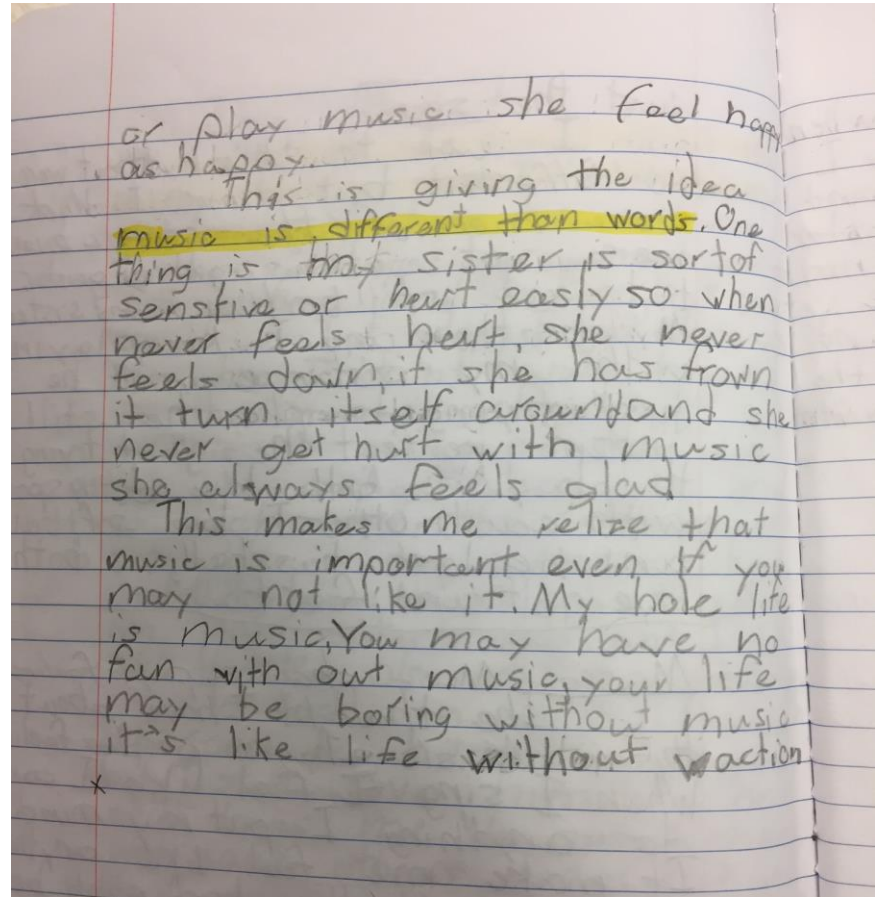 or play music she feel happy
as happy.
This is giving the idea
music is different than words. One
thing is my sister is sort of
senstive or heurt easly so when
never feels heurt, she never
feels down, if she has frown
it turn itself around and she
never get hurt with music
she always feels glad
This makes me relize that
music is important even if you
may not like it. My hole life
is music, You may have no
fun with out music, your life
may be boring without music
it's like life without action